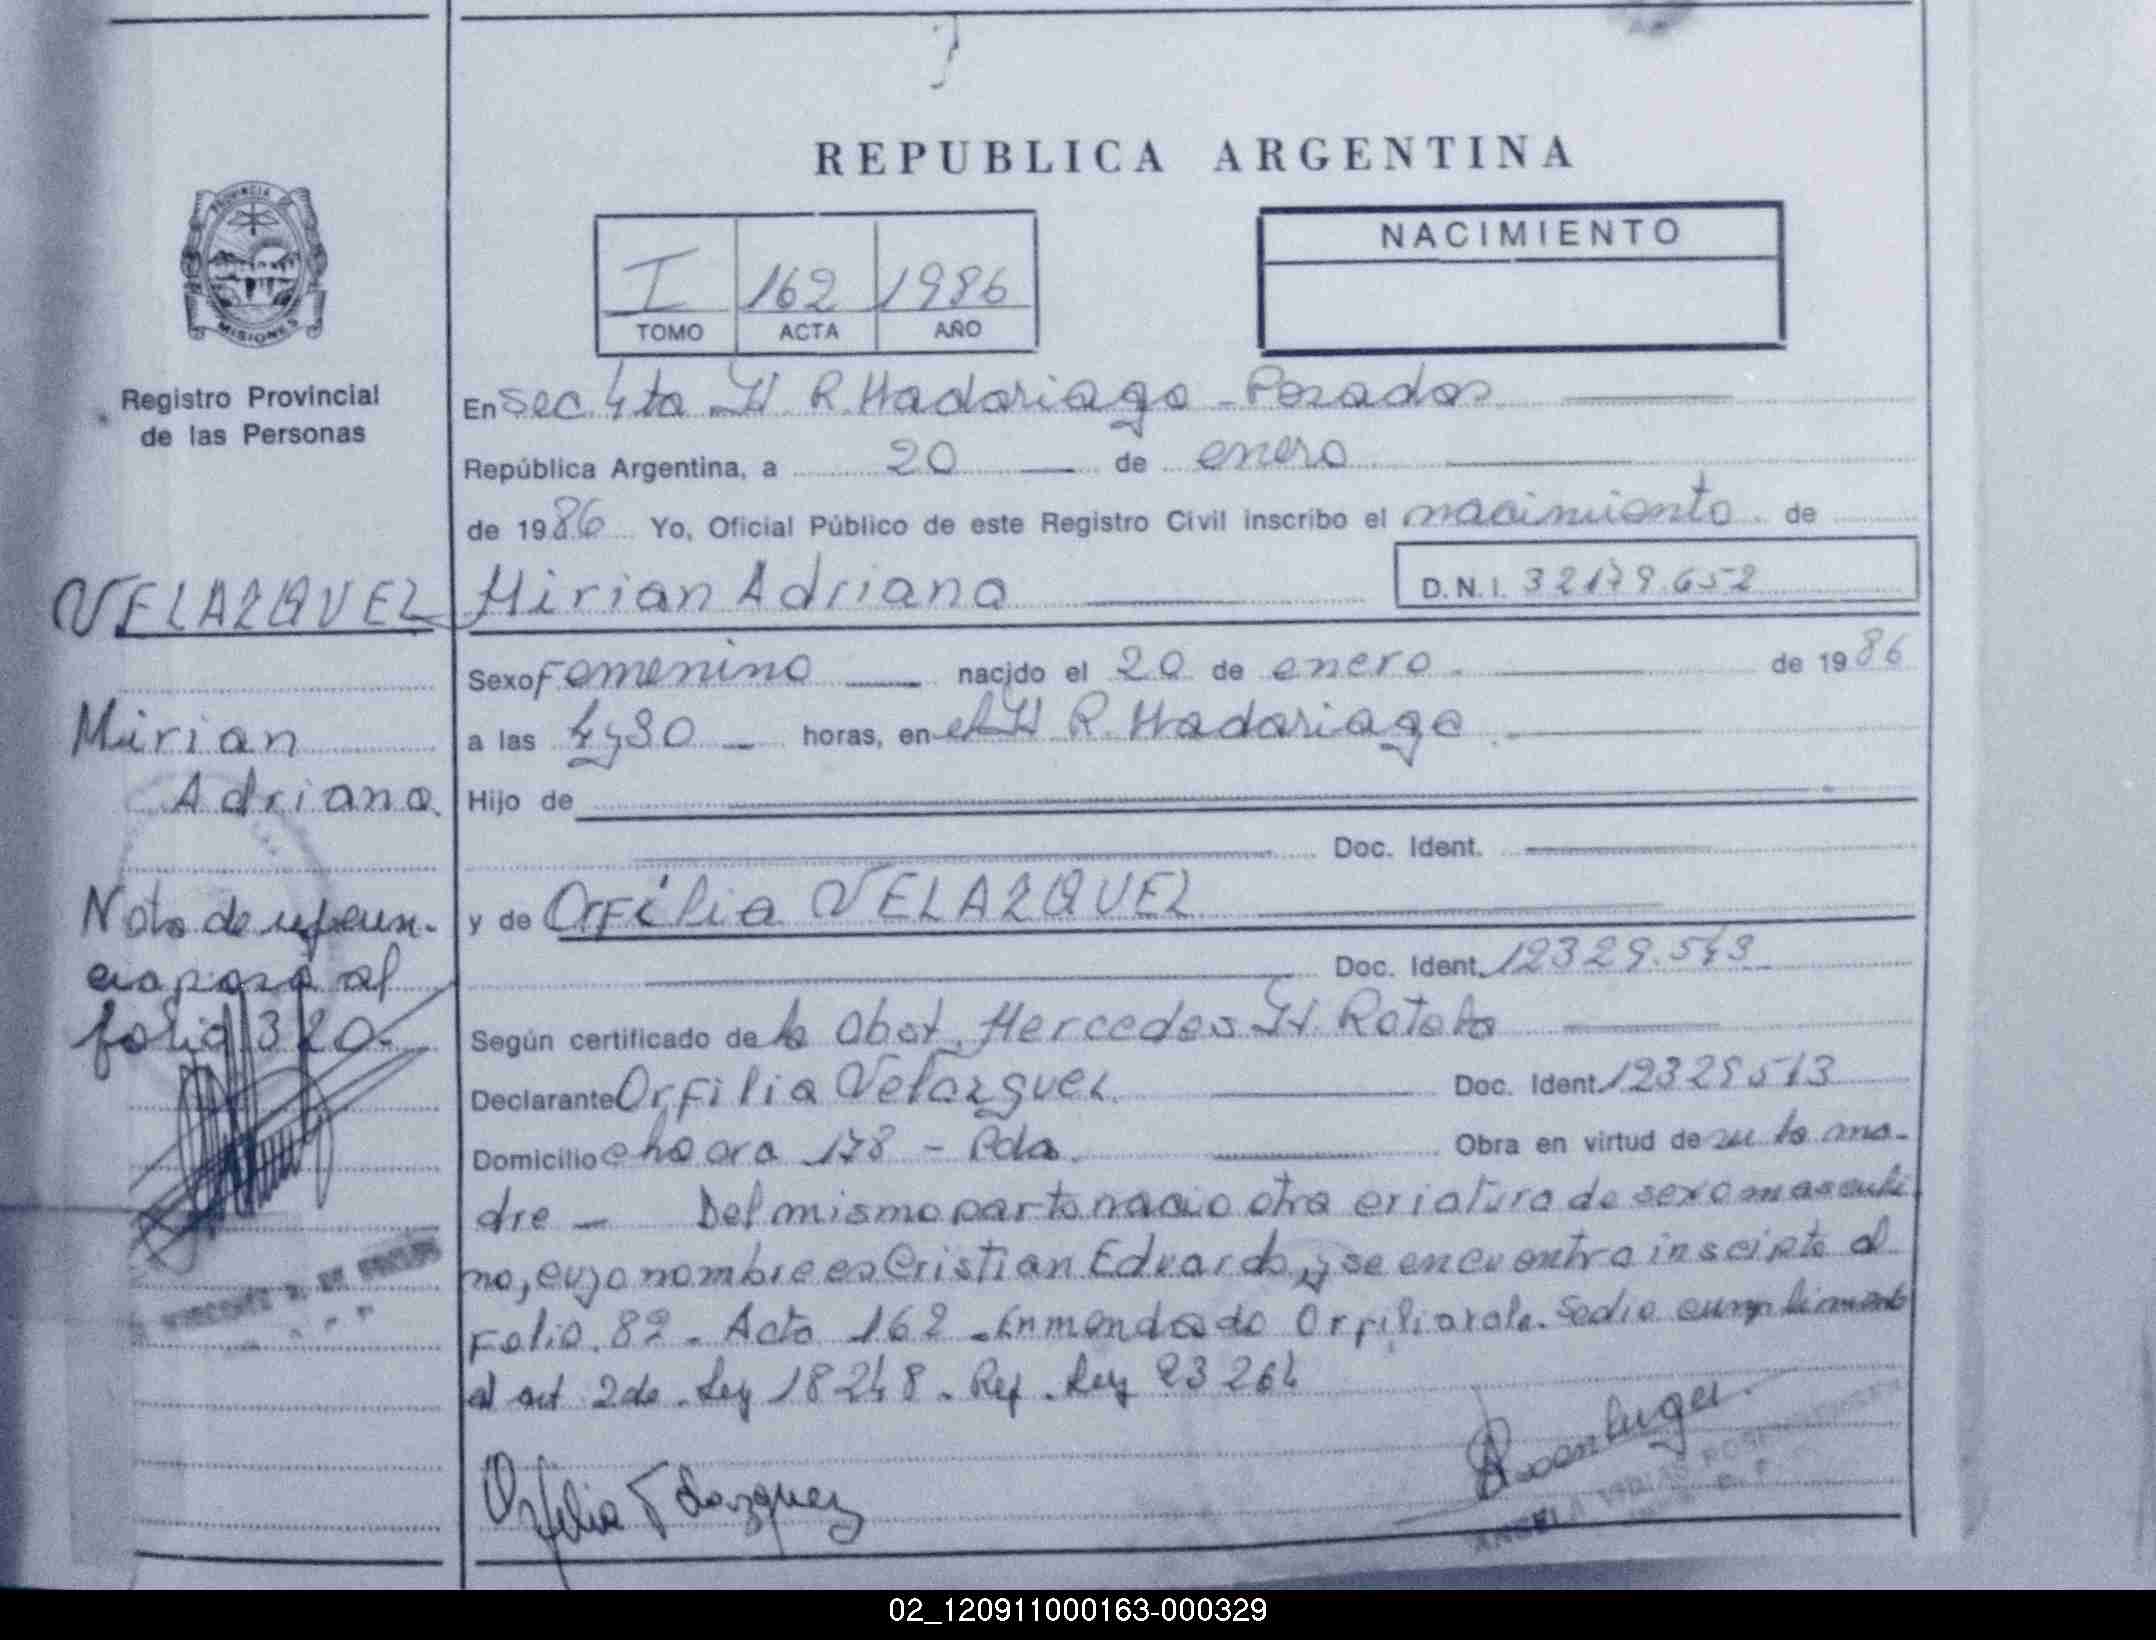 REPUBLICA ARGENTINA
PROVINCIA
MISIONES
Registro Provincial
de las Personas
I 162 1986
TOMO ACTA AÑO
NACIMIENTO
En Sec. 4ta H. R. Madariaga - Posadas
República Argentina, a 20 de enero
de 1986 Yo, Oficial Público de este Registro Civil inscribo el nacimiento de
VELAZQUEZ Mirian Adriana D.N.I. 32179.652
Sexo Femenino nacido el 20 de enero de 1986
Mirian
a las 4y30 horas, en el H R. Madariaga
Adriana
Hijo de
Doc. Ident.
y de Orfilia VELAZQUEZ
Doc. Ident. 12329.513
Nota de referen-
cia pasa al
folio 320-
Según certificado de la Obst. Mercedes H.
Declarante Orfilia Velazquez Doc. Ident 12329513
Domicilio chacra 178 - Pdas. Obra en virtud de ser la ma-
dre - Del mismo parto nacio otra criatura de sexo masculi
no, cuyo nombre es Cristian Eduardo, y se encuentra inscipto al
Folio. 82 - Acta 162 - Enmendado Orfilia vale. Se dio cumplimiento
al art 2do - Ley 18248 - Ref. Ley 23264
Orfelia Velazquez
ANGELA
02_120911000163-000329